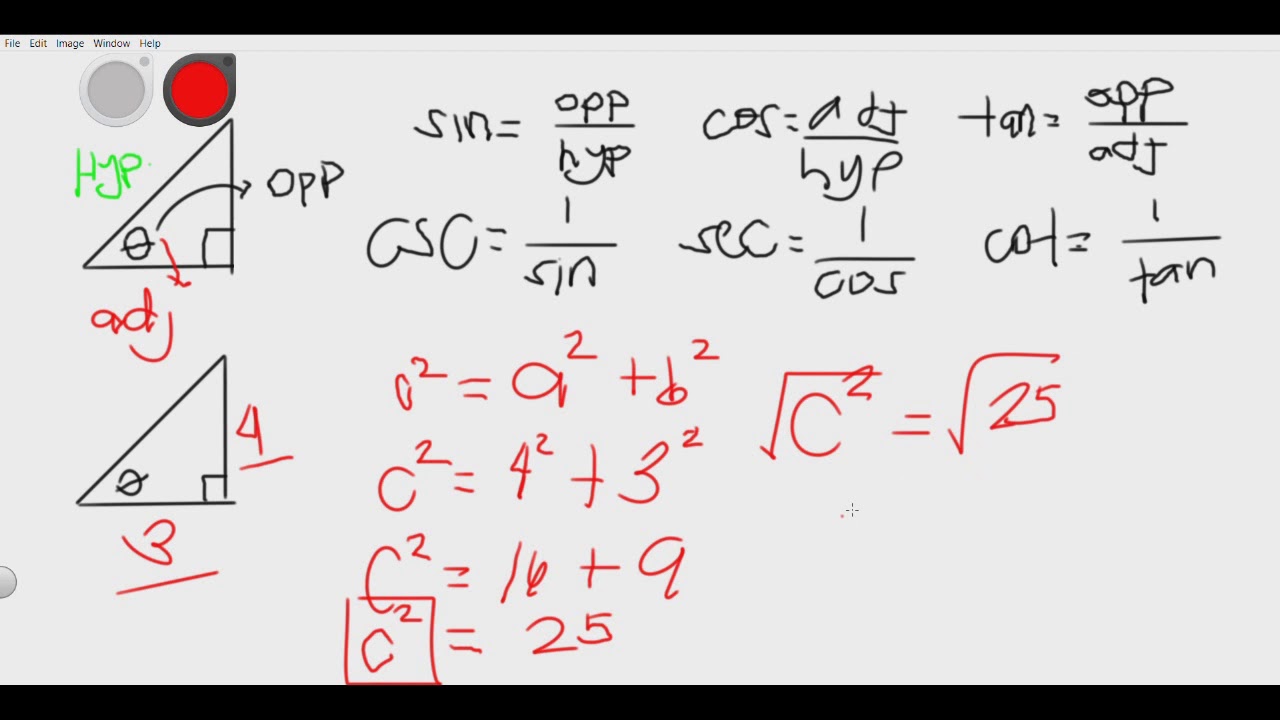 File Edit Image Window Help
Hyp
opp
θ
adj
sin = opp/hyp
cos = adj/hyp
tan = opp/adj
csc = 1/sin
sec = 1/cos
cot = 1/tan
4
θ
3
c² = a² + b²
c² = 4² + 3²
c² = 16 + 9
c² = 25
√c² = √25